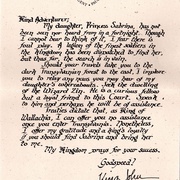 Kind Adventurer;
My daughter, Princess Sabrina, has not
been seen nor heard from in a fortnight. Though
I cannot hear to think of it, I fear there is
foul play. A legion of the finest soldiers in
the Kingdom has been dispatched to find her,
but thus far, the search is in vain.
Should your travels take you to the
dark Transylvanian forest to the east, I implore
you to relay any news you may hear of my
daughter's whereabouts. Seek the dwelling
of the Wizard Elm. He is a curious fellow
but a loyal friend to this Court. Speak to
him and perhaps he will be of assistance.
dictate that, as King of
Wallachia, I can offer you no assistance
once you enter Transylvania. Nonetheless,
I offer my gratitude and a king's loyalty
if you should find Sabrina and bring her
to me.
My Kingdom prays for your success.
Godspeed!
King John